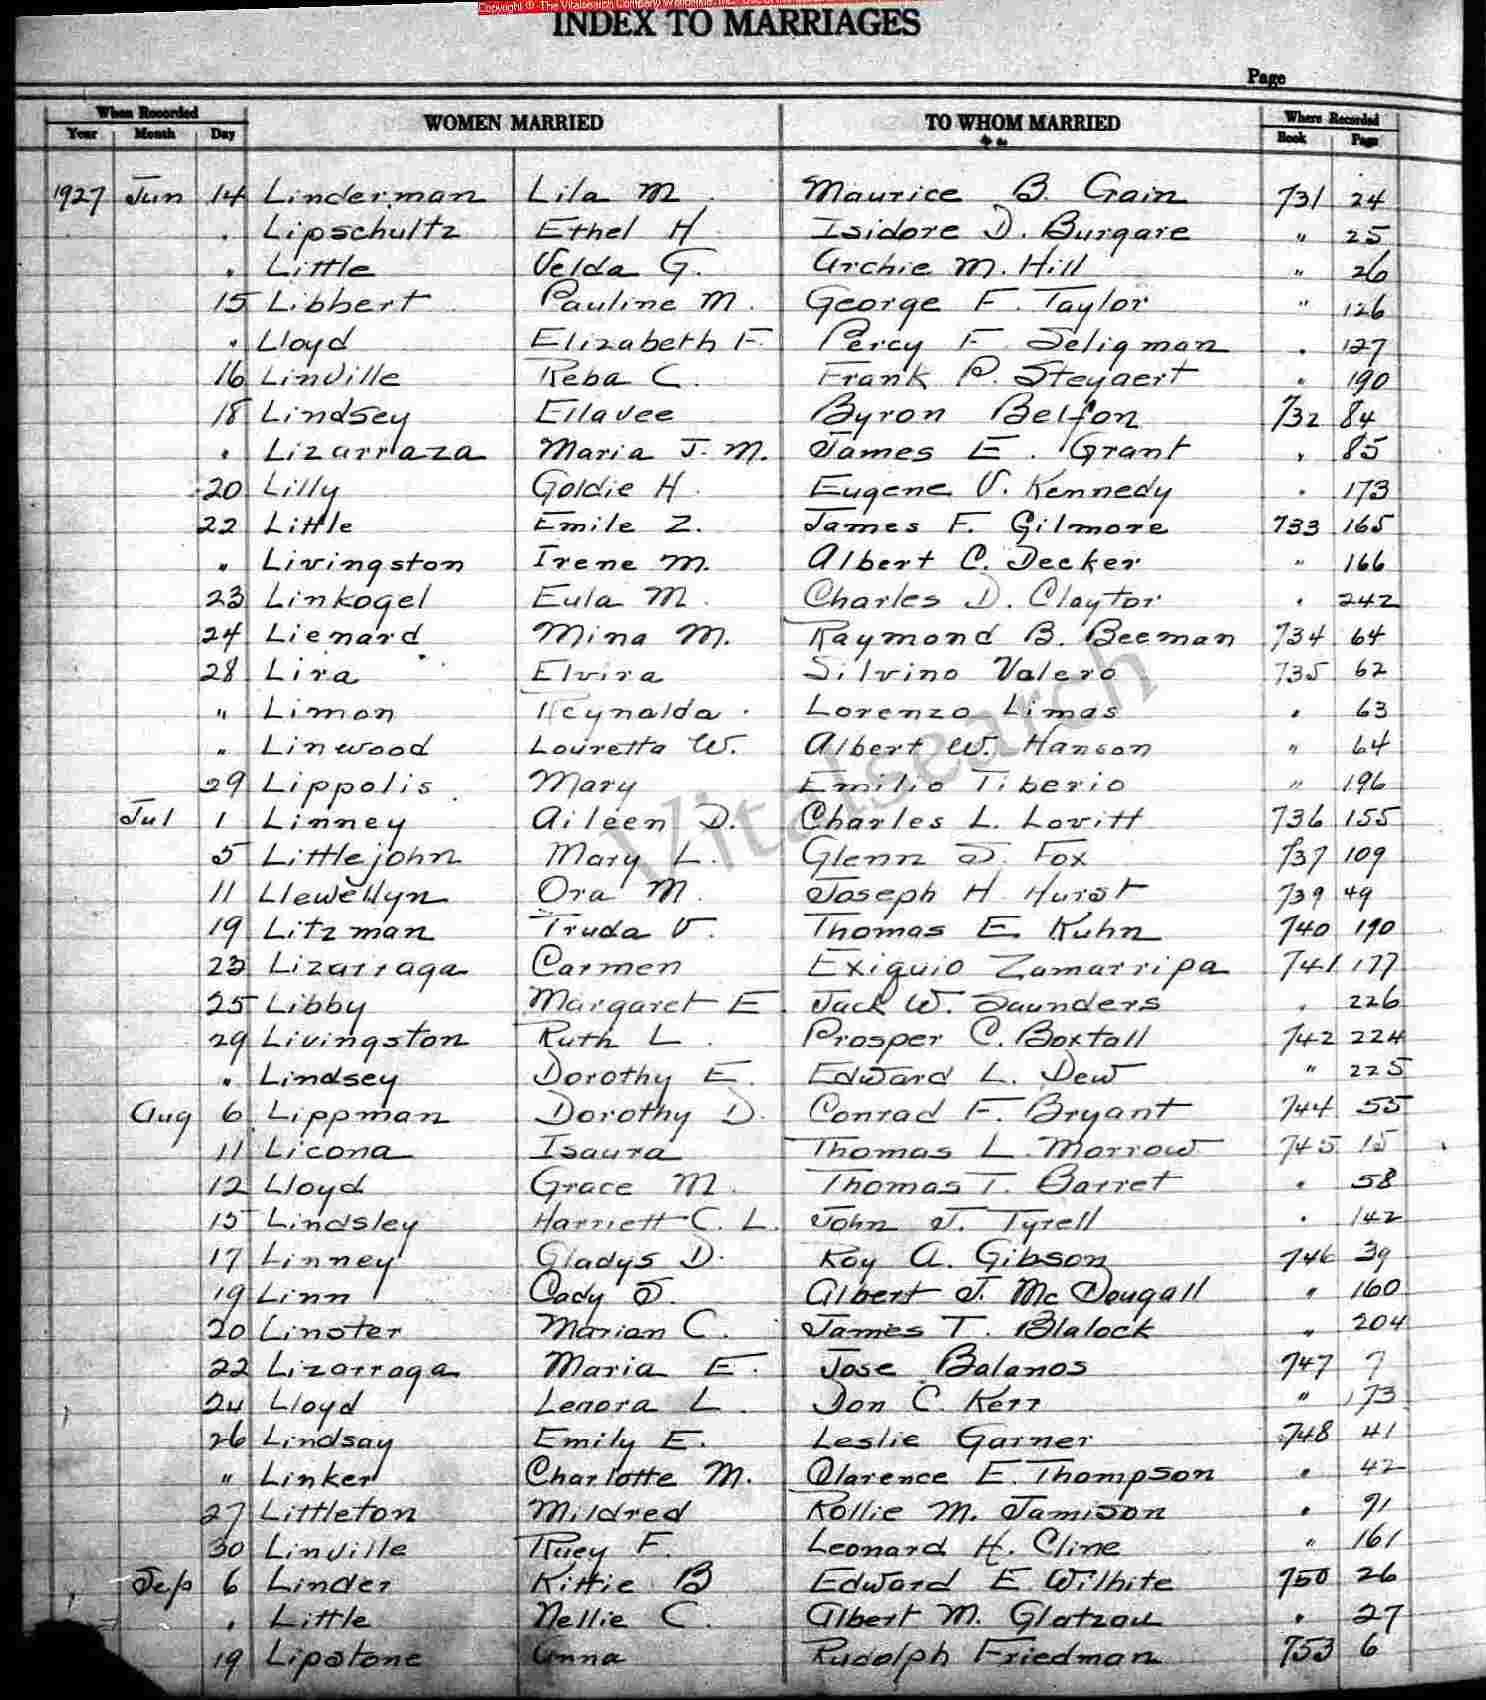 Copyright © - The Vitalsearch Company Worldwide, Inc.
INDEX TO MARRIAGES
Page
When Recorded WOMEN MARRIED TO WHOM MARRIED Where Recorded
Year Month Day Book Page
1927 Jun 14 Linderman Lila M. Maurice B. Gain 731 24
Lipschultz Ethel H. Isidore D. Burgare " 25
" Little Velda G. Archie M. Hill " 26
15 Libbert Pauline M. George F. Taylor " 126
" Lloyd Elizabeth F. Percy F. Seligman " 127
16 Linville Reba C. Frank P. Steyaert " 190
18 Lindsey Ellavee Byron Belfon 732 84
" Lizarraza Maria J. M. James E. Grant " 85
20 Lilly Goldie H. Eugene V. Kennedy " 173
22 Little Emile Z. James F. Gilmore 733 165
" Livingston Irene M. Albert C. Decker " 166
23 Linkogel Eula M. Charles D. Claytor " 242
24 Lienard Mina M. Raymond B. Beeman 734 64
28 Lira Elvira Silvino Valero 735 62
" Limon Reynalda Lorenzo Limas " 63
" Linwood Louretta W. Albert W. Hanson " 64
29 Lippolis Mary Emilio Tiberio " 196
Jul 1 Linney Aileen D. Charles L. Lovitt 736 155
5 Littlejohn Mary L. Glenn J. Fox 737 109
11 Llewellyn Ora M. Joseph H. Hurst 739 49
19 Litzman Truda V. Thomas E. Kuhn 740 190
23 Lizarraga Carmen Exiquio Zamarripa 741 177
25 Libby Margaret E. Jack W. Saunders " 226
29 Livingston Ruth L. Prosper C. Boxtall 742 224
" Lindsey Dorothy E. Edward L. Dew " 225
Aug 6 Lippman Dorothy D. Conrad F. Bryant 744 55
11 Licona Isaura Thomas L. Morrow 745 15
12 Lloyd Grace M. Thomas T. Barret " 58
15 Lindsley Harriett C. L. John J. Tyrell " 142
17 Linney Gladys D. Roy A. Gibson 746 39
19 Linn Cady J. Albert J. McDougall " 160
20 Linster Marian C. James T. Blalock " 204
22 Lizarraga Maria E. Jose Bolanos 747 7
24 Lloyd Lenora L. Don C. Kerr " 173
26 Lindsay Emily E. Leslie Garner 748 41
" Linker Charlotte M. Clarence E. Thompson " 42
27 Littleton Mildred Rollie M. Jamison " 91
30 Linville Ruey F. Leonard H. Cline " 161
Sep 6 Linder Kittie B Edward E Wilhite 750 26
" Little Nellie C. Albert M. Glatzau " 27
19 Lipstone Anna Rudolph Friedman 753 6
Vitalsearch